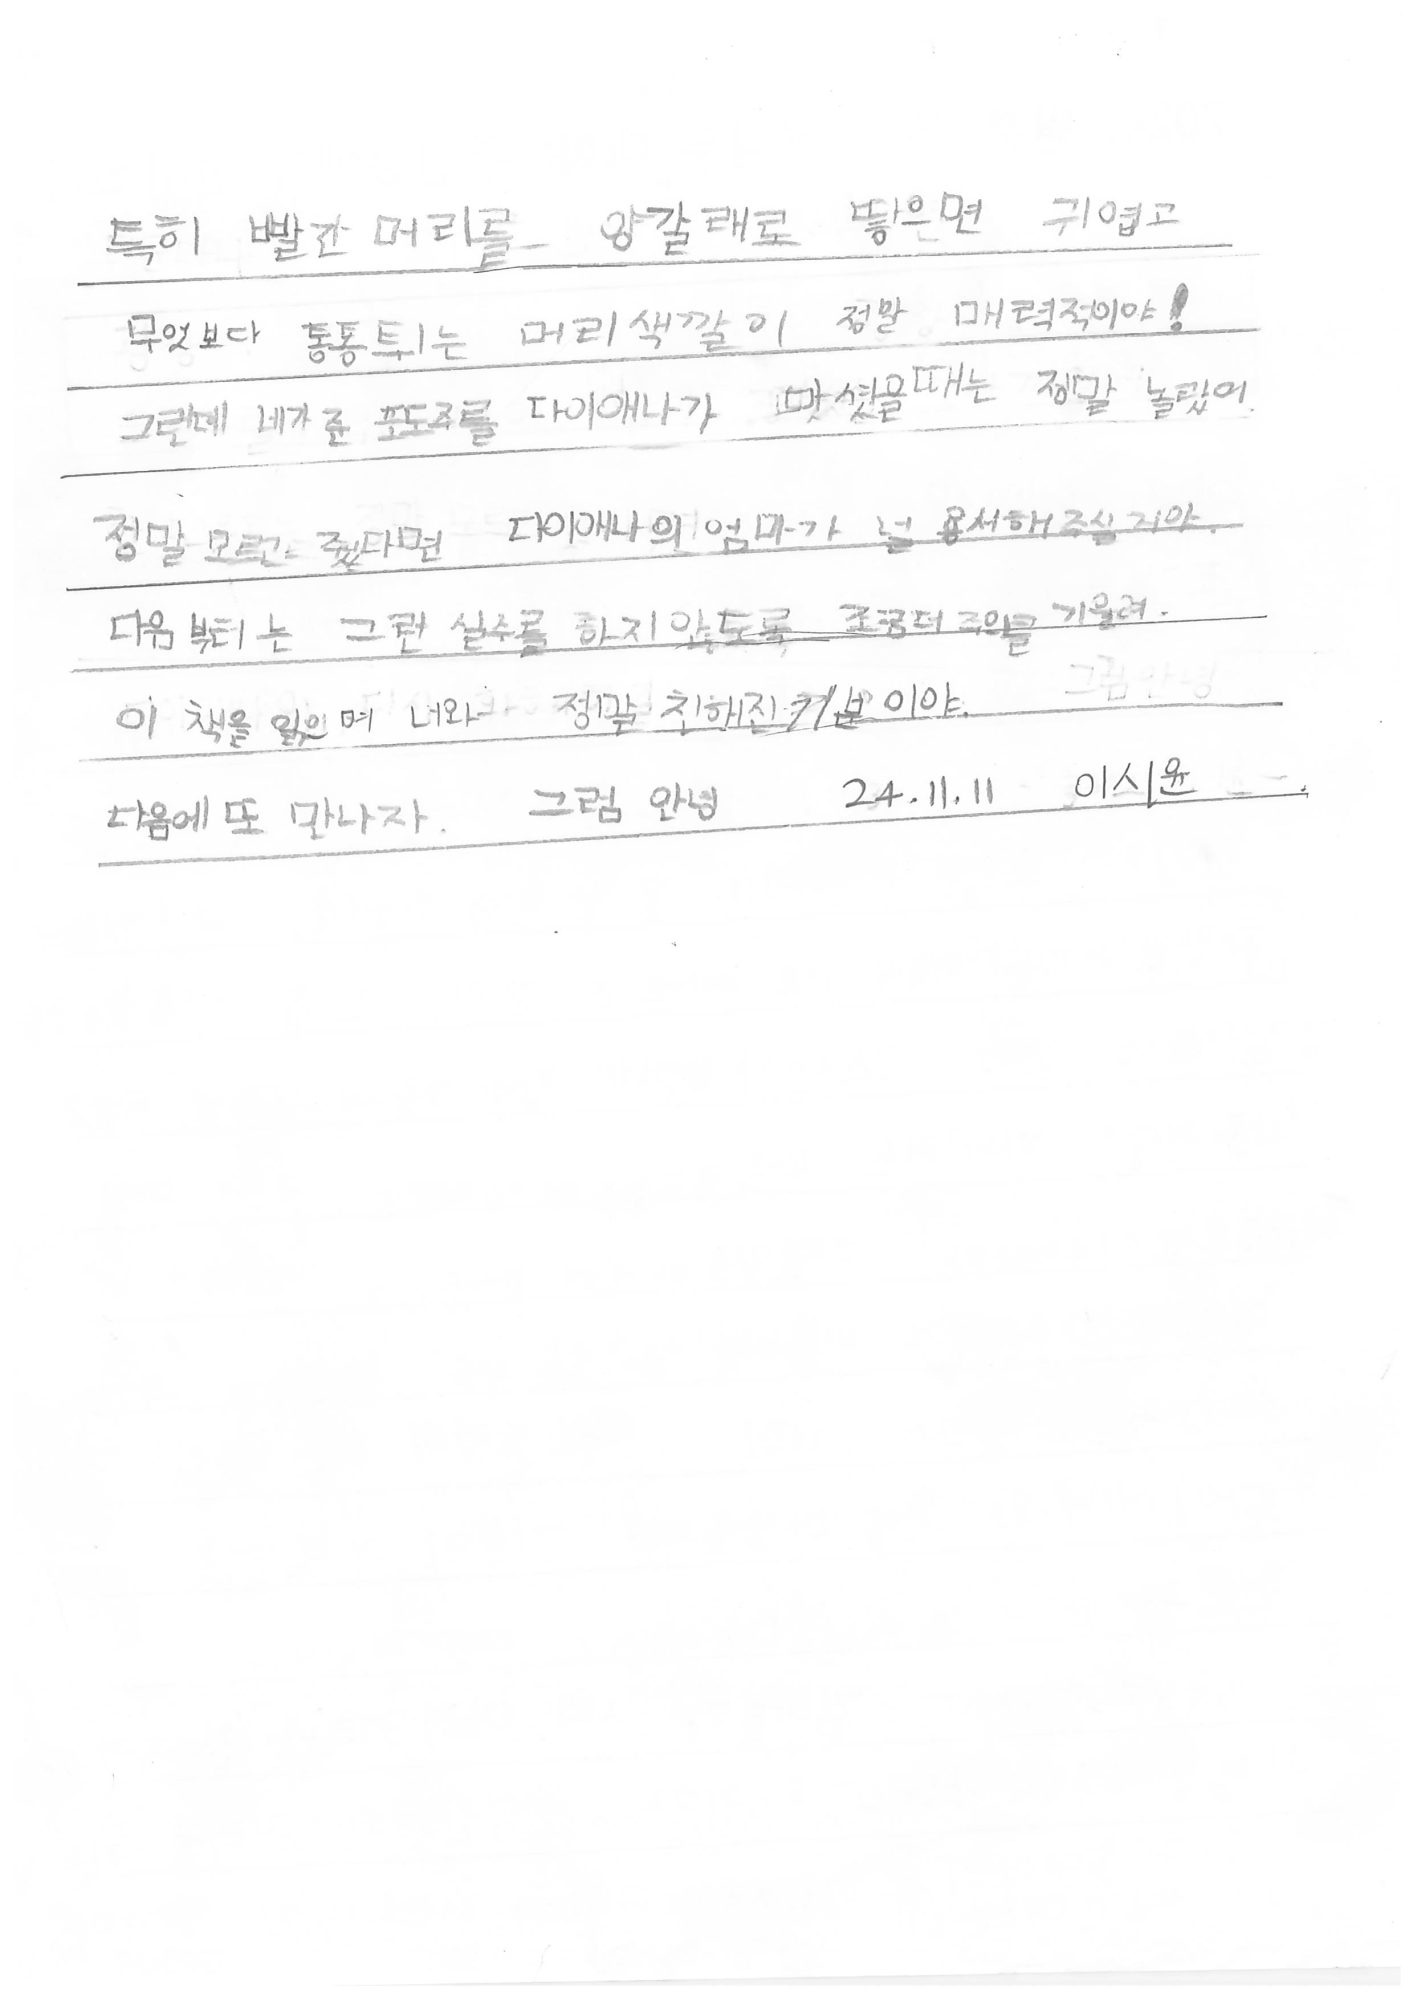 특히 빨간 머리를 양갈래로 땋은면 귀엽고
무엇보다 통통튀는 머리색깔이 정말 매력적이야!
그런데 네가 준 포도주를 다이애나가 맛셨을때는 정말 놀랐어.
정말 모르고 줬다면 다이애나의 엄마가 널 용서해주실거야.
다음부터는 그런 실수를 하지 않도록 조금더 주의를 기울려.
이 책을 읽으며 너와 정말 친해진 기분이야.
다음에 또 만나자. 그럼 안녕 24.11.11 이시윤